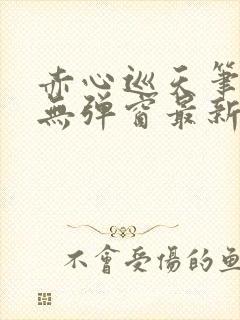 赤心巡天筆
無彈窗最新
不會受傷的魚